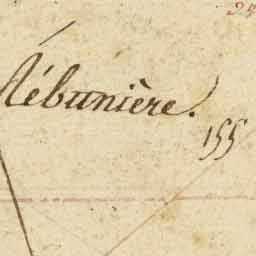 Rébunière.
155